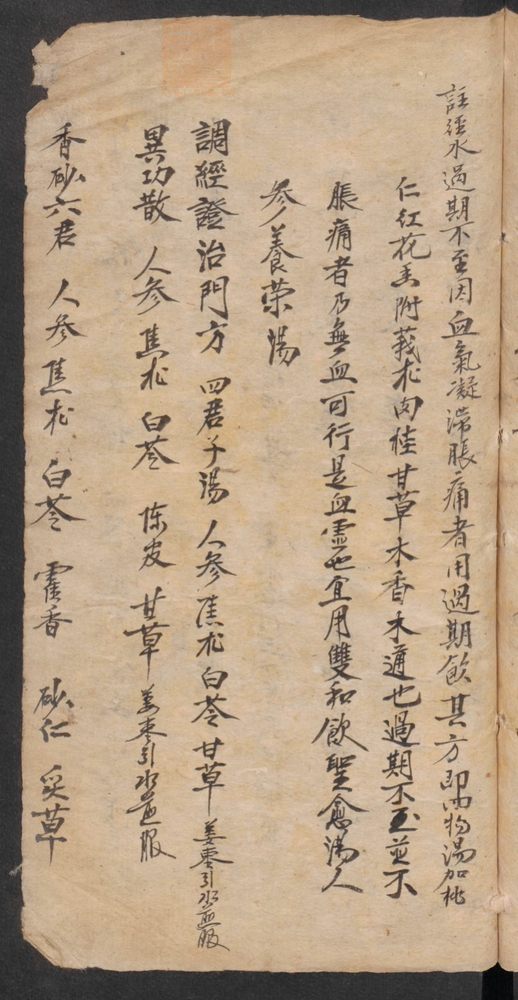 註經水過期不至因血氣凝滯脹痛者用過期飲其方即四物湯加桃
仁紅花香附莪朮肉桂甘草木香木通也過期不至並不
脹痛者乃無血可行是血虛也宜用雙和飲聖愈湯人
参養荣湯
調經證治門方 四君子湯 人参焦朮白苓甘草 姜枣引水煎服
異功散 人参焦朮 白苓 陈皮 甘草 姜枣引水煎服
香砂六君 人参焦朮 白苓 霍香 砂仁 炙草